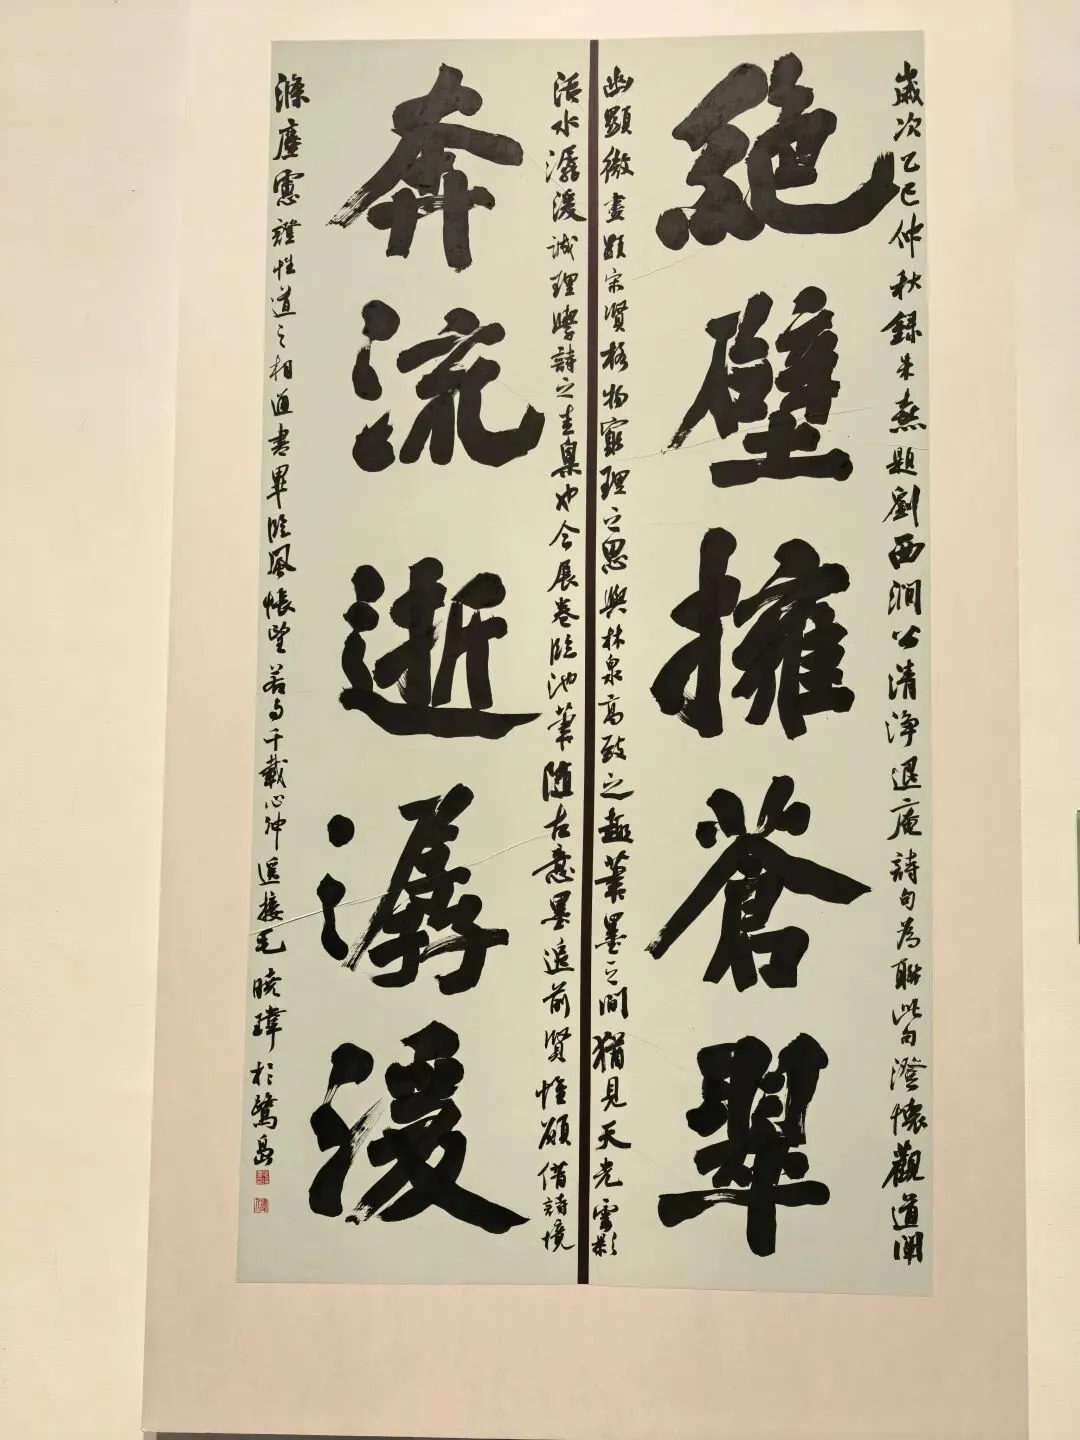 歲次乙巳仲秋録朱熹題劉西澗公清淨退庵詩句為聯此句澄懷觀道闡
絶壁擁蒼翠
幽顯微盡顯宋賢格物窮理之思與林泉高致之趣筆墨之間猶見天光雲影
活水潺湲誠理學詩之圭臬也今展卷臨池筆随古意墨追前賢惟願借詩境
奔流逝潺湲
滌塵慮證性道之相通書畢臨風悵望若与千載心神遥接毛曉瑋於鷺島